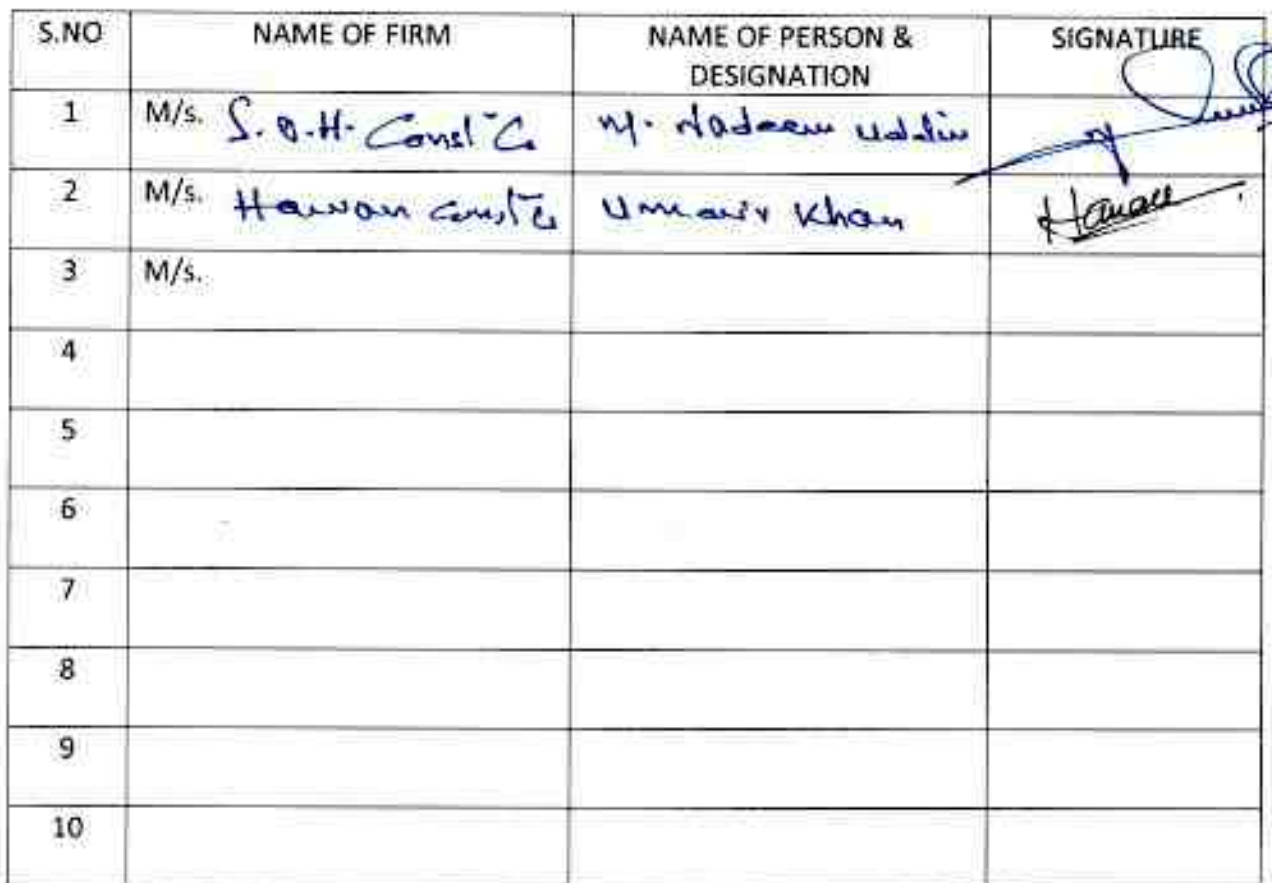 S.NO NAME OF FIRM NAME OF PERSON & DESIGNATION SIGNATURE
1 M/s. Const Co M. Nadeem uddin
2 M/s. Umair Khan
3 M/s.
4
5
6
7
8
9
10